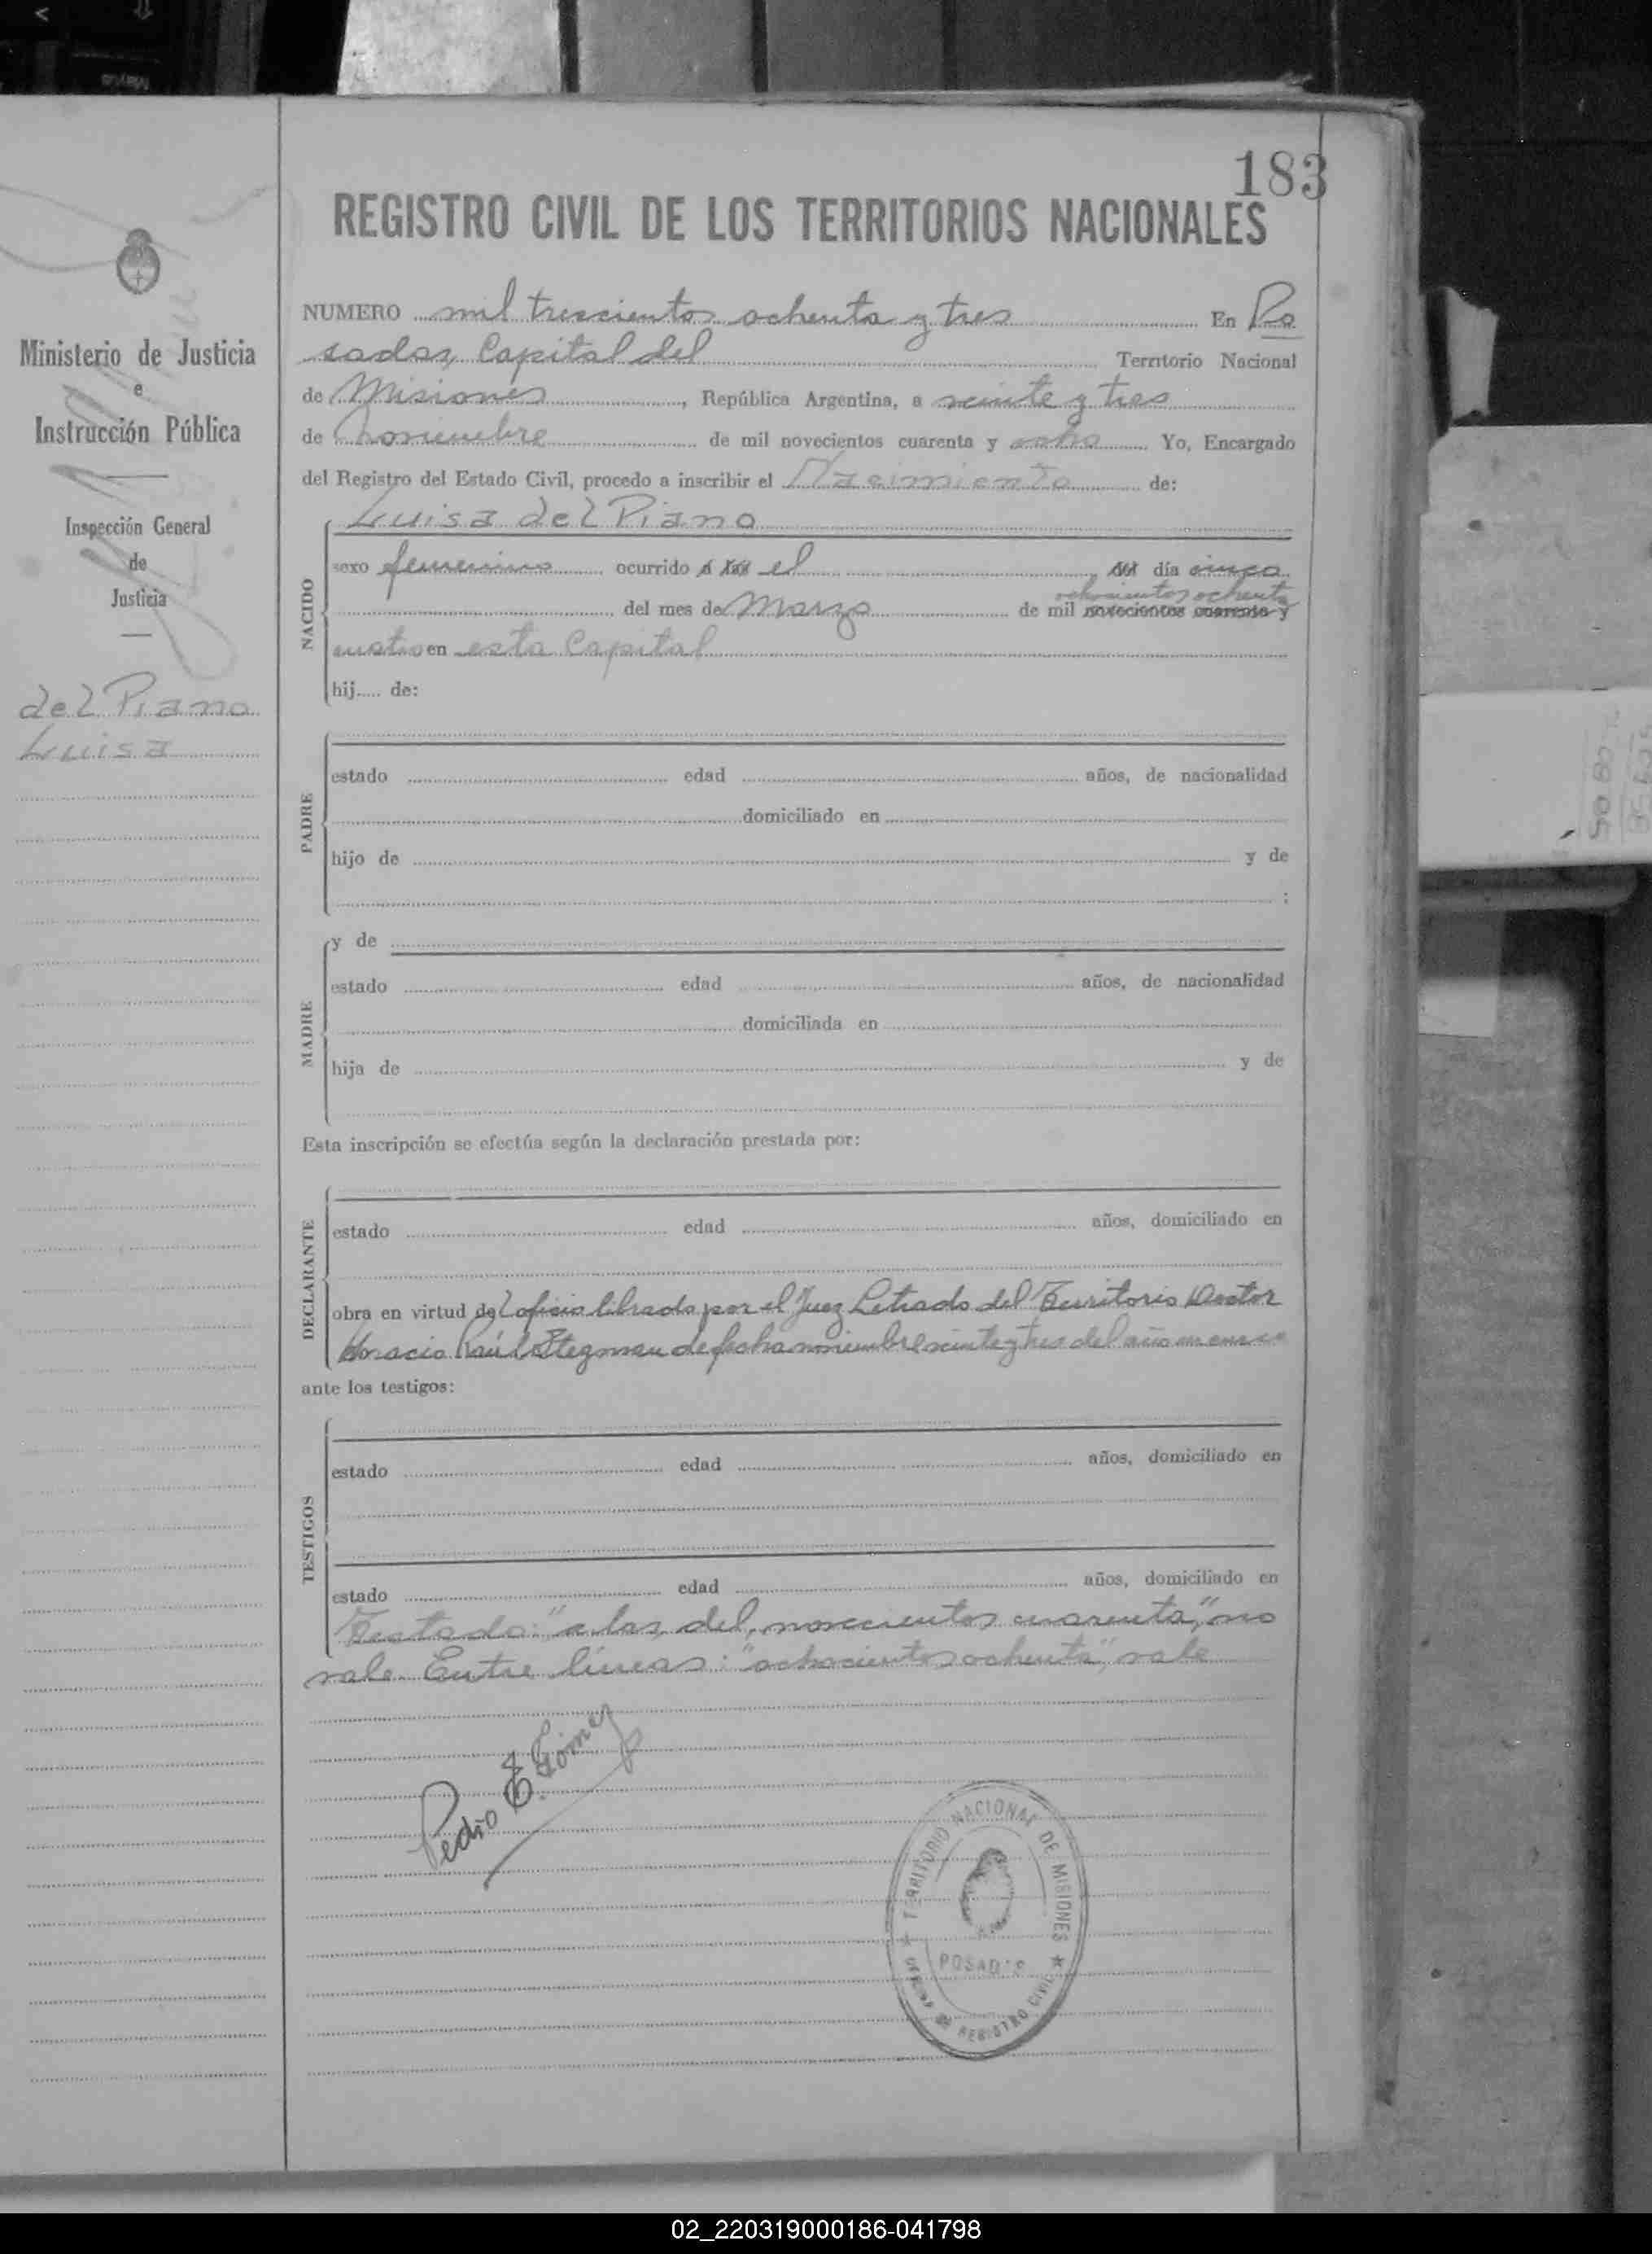 183
REGISTRO CIVIL DE LOS TERRITORIOS NACIONALES
Ministerio de Justicia
e
Instrucción Pública
Inspección General
de
Justicia
del Piano
Luisa
NUMERO mil trescientos ochenta y tres En Po
sadas, Capital del Territorio Nacional
de Misiones, República Argentina, a veinte y tres
de noviembre de mil novecientos cuarenta y ocho Yo, Encargado
del Registro del Estado Civil, procedo a inscribir el Nacimiento de:
Luisa del Piano
NACIDO
sexo femenino ocurrido a las el del día cinco
ochocientos ochenta
del mes de Marzo de mil novecientos cuarenta y
cuatro en esta Capital
hij..... de:
PADRE
estado edad años, de nacionalidad
domiciliado en
hijo de y de
;
MADRE
y de
estado edad años, de nacionalidad
domiciliada en
hija de y de
Esta inscripción se efectúa según la declaración prestada por:
DECLARANTE
estado edad años, domiciliado en
obra en virtud del oficio librado por el Juez Letrado del Territorio Doctor
Horacio Raúl Stegman de fecha noviembre veinte y tres del año en curso
ante los testigos:
TESTIGOS
estado edad años, domiciliado en
estado edad años, domiciliado en
Testado: "a las, del, novecientos cuarenta," no
vale. Entre líneas: "ochocientos ochenta", vale
Pedro E. Gómez
TERRITORIO NACIONAL DE MISIONES
POSADAS
REGISTRO CIVIL
02_220319000186-041798